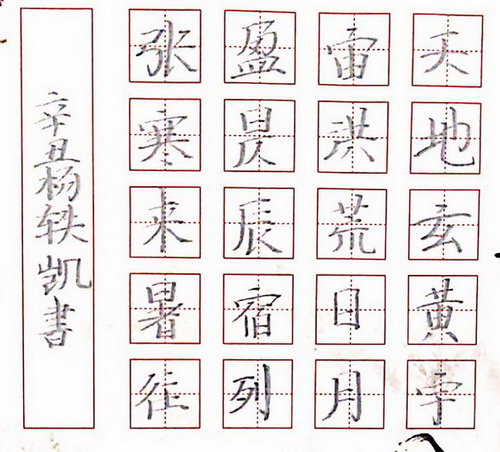 天地玄黄宇
宙洪荒日月
盈昃辰宿列
张寒来暑往
辛丑杨轶凯書